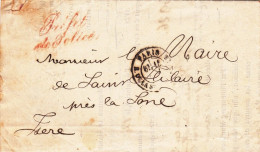 Préfet
de Police
PARIS
Monsieur le Maire
de Saint Hilaire
près la Côte
Isère